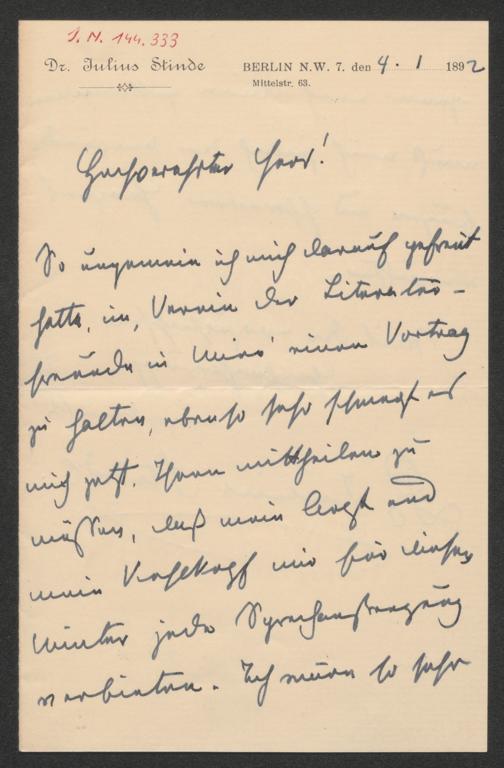 J. N. 144.333
Dr. Julius Stinde
BERLIN N.W. 7. den 4. 1 1892
Mittelstr. 63.
Hochverehrter Herr!
So ungemein ich mich darauf gefreut
hatte, im Verein der Literatur-
freunde in Wien einen Vortrag
zu halten, ebenso sehr schmerzt es
mich jetzt, Ihnen mittheilen zu
müssen, daß mein Arzt und
mein Kehlkopf mir für diesen
Winter jede Sprechanstrengung
verbieten. Ich war so sehr